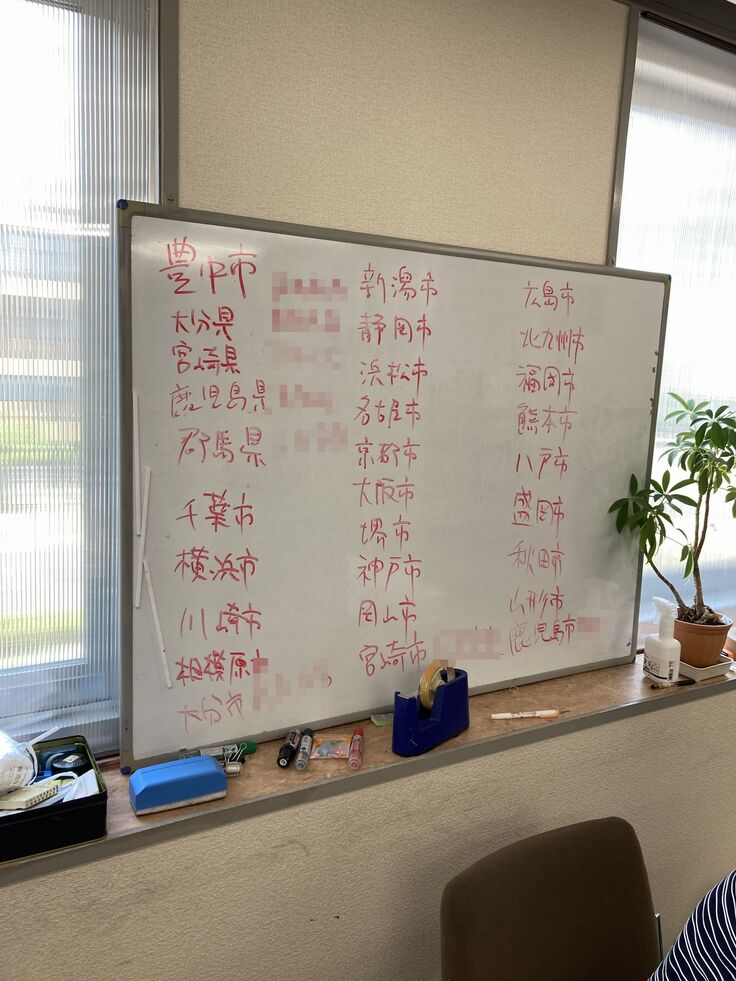 豊中市
大分県
宮崎県
鹿児島県
群馬県
千葉市
横浜市
川崎市
相模原市
大分市
新潟市
静岡市
浜松市
名古屋市
京都市
大阪市
堺市
神戸市
岡山市
宮崎市
広島市
北九州市
福岡市
熊本市
八戸市
盛岡市
秋田市
山形市
鹿児島市